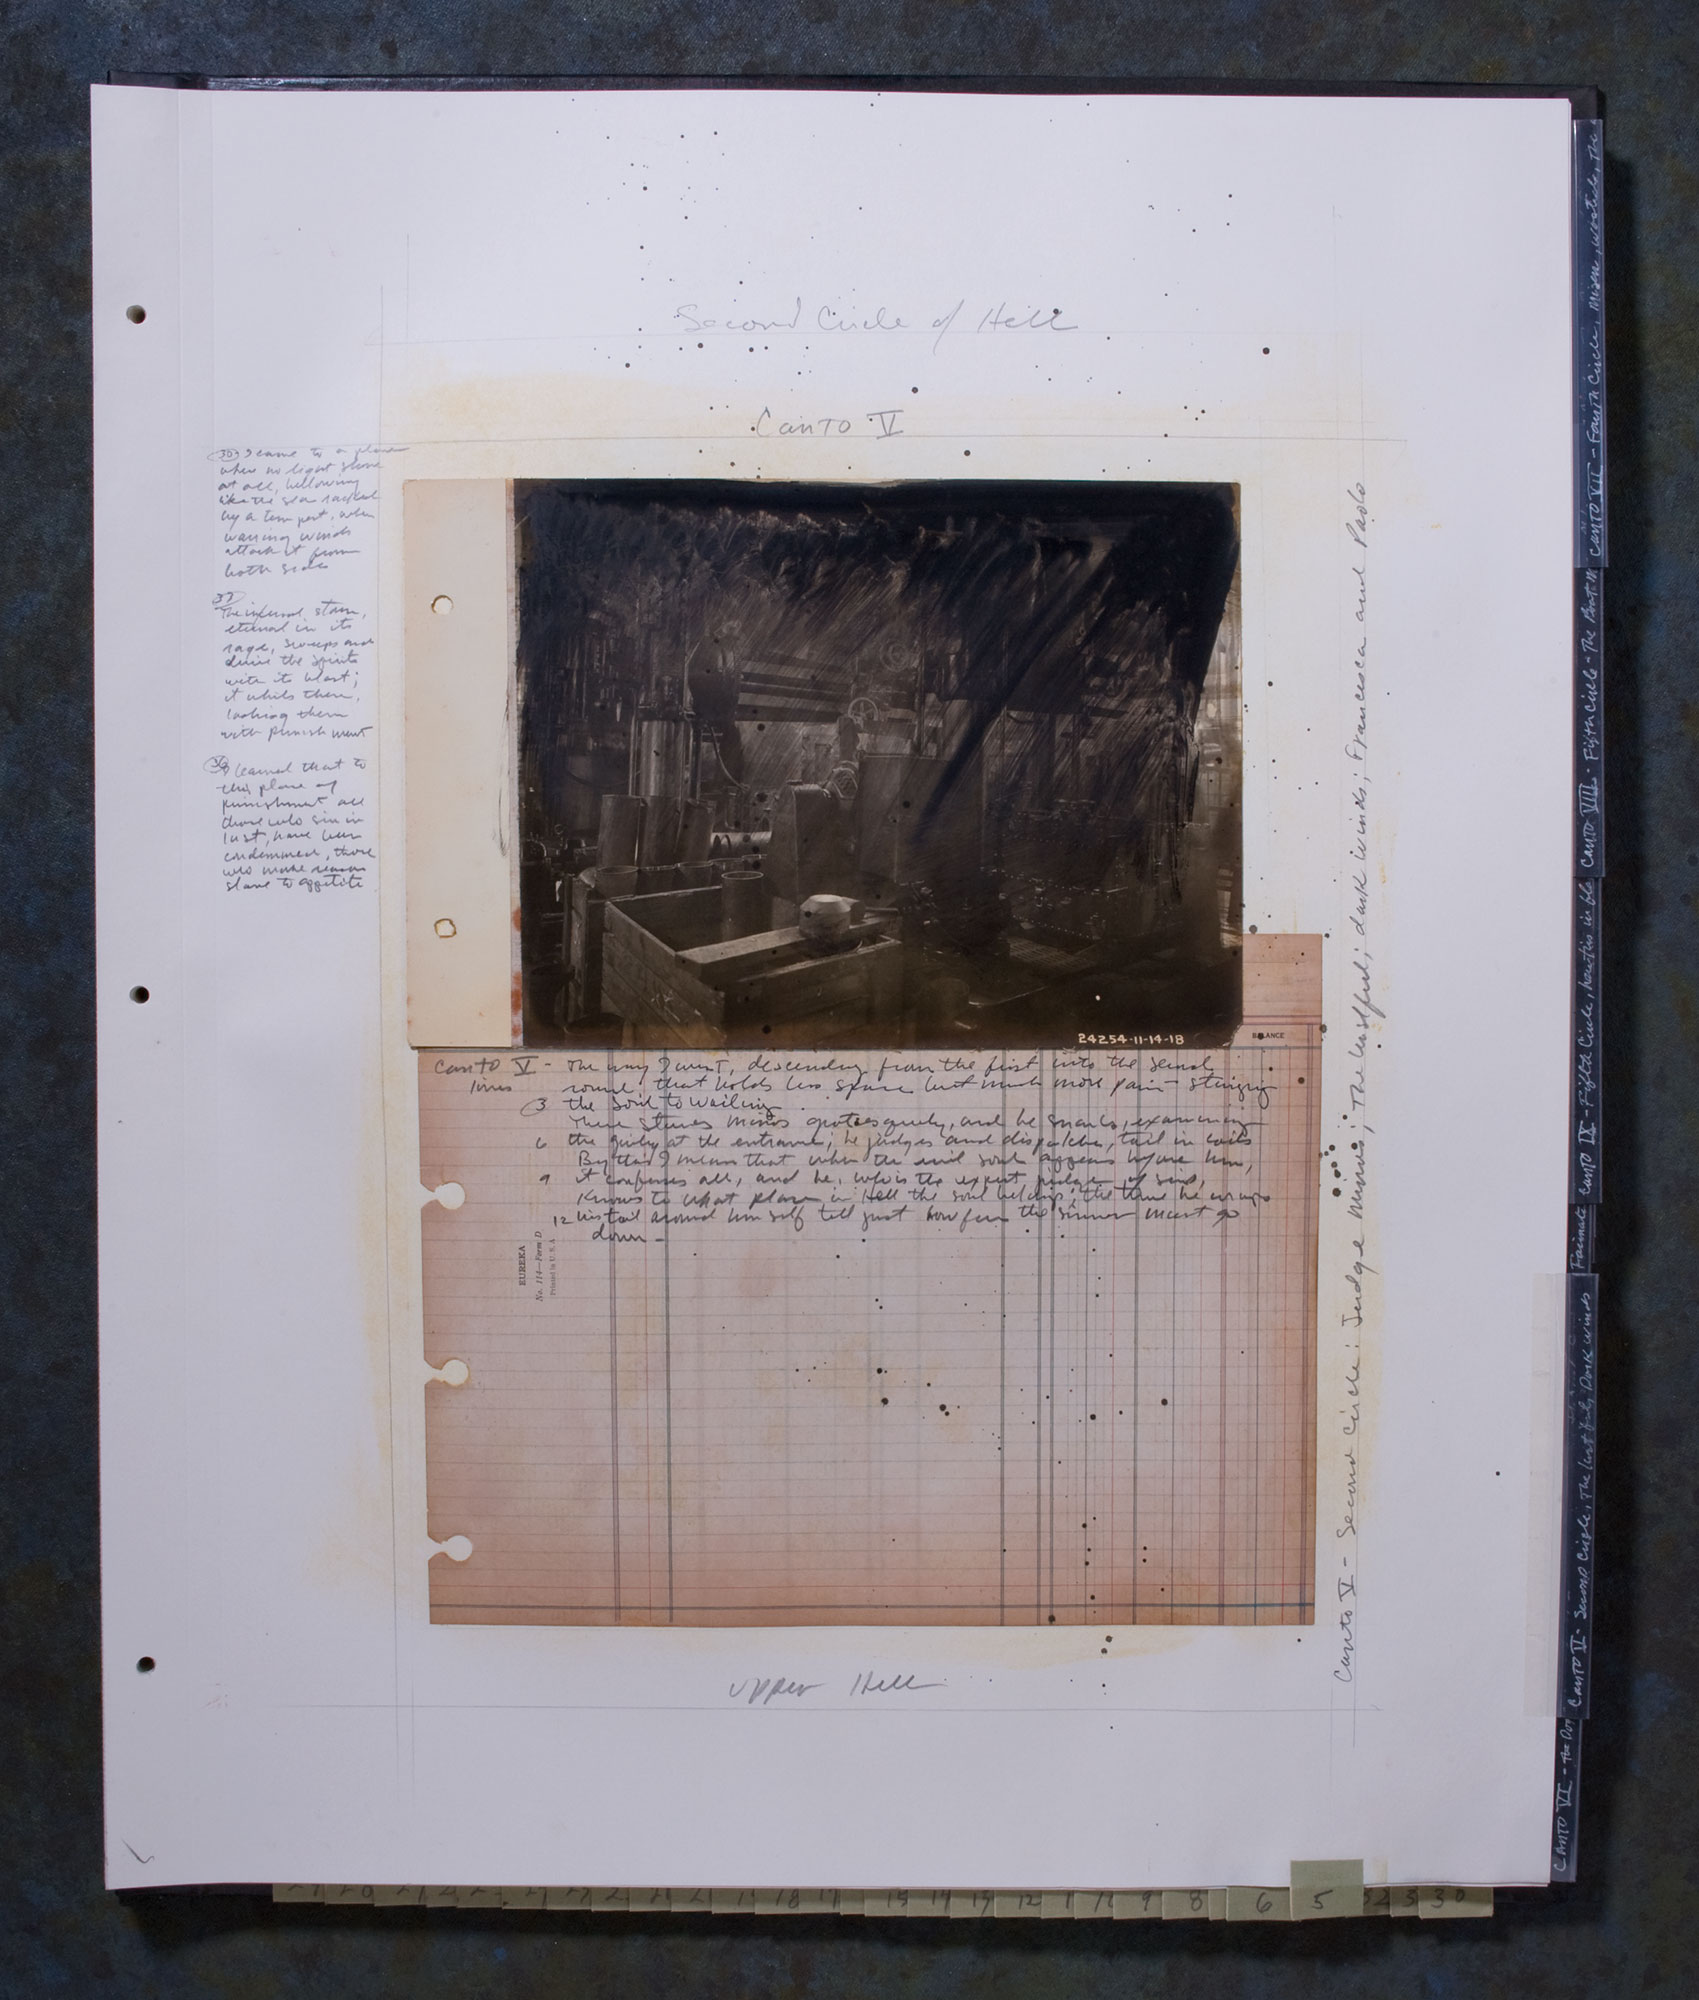 Second Circle of Hell
Canto V
I came to a place
where no light shone
at all, bellowing
like the sea racked
by a tempest, when
warring winds
attack it from
both sides
The infernal storm,
eternal in its
rage, sweeps and
drives the spirits
with its blast;
it whirls them,
lashing them
with punishment
I learned that to
this place of
punishment all
those who sin in
lust, have been
condemned, those
who make reason
slave to appetite
24254-11-14-18
BALANCE
Canto V - The way I went, descending from the first into the second
lines round, that holds less space but much more pain - stinging
3 the soul to wailing
There stands Minos grotesquely, and he snarls, examining
6 the guilty at the entrance; he judges and dispatches, tail in coils
By this I mean that when the evil soul appears before him,
9 it confesses all, and he, who is the expert judge of sins,
Knows to what place in Hell the soul belongs; the times he wraps
12 his tail around himself tell just how far the sinner must go
down -
EUREKA
No. 114—Form D
Printed in U.S.A.
Upper Hell
Canto V - Second Circle: Judge Minos; The Lustful; dark winds; Francesca and Paolo
Canto VII - Fourth Circle, Misers, wastrels, the
Canto VIII - Fifth Circle - The
Canto IX - Fifth Circle,
Canto V - Second Circle, The Lustful, Dark Winds
Canto VI - The
18 17 15 14 13 12 11 9 8 6 5 30